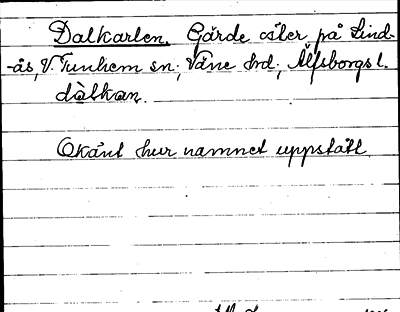 Dalkarlen. Gärde öster på Lind-
-ås, V. Tunhem sn; Väne hd, Älfsborgs l.
dàlkan.
Okänt hur namnet uppstått.